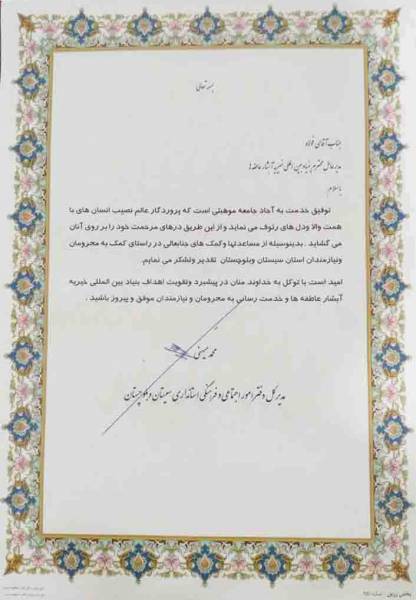 بسمه تعالی
جناب آقای فولاد
مدیرعامل محترم بنیاد بین المللی خیریه آبشار عاطفه ها
با سلام
توفیق خدمت به آحاد جامعه موهبتی است که پروردگار عالم نصیب انسان های با
همت والا ودل های رئوف می نماید و از این طریق درهای مرحمت خود را بر روی آنان
می گشاید . بدینوسیله از مساعدتها وکمک های جنابعالی در راستای کمک به محرومان
ونیازمندان استان سیستان وبلوچستان تقدیر وتشکر می نمایم.
امید است با توکل به خداوند منان در پیشبرد وتقویت اهداف بنیاد بین المللی خیریه
آبشار عاطفه ها و خدمت رسانی به محرومان و نیازمندان موفق و پیروز باشید .
محمد
مدیر کل دفتر امور اجتماعی و فرهنگی استانداری سیستان و بلوچستان